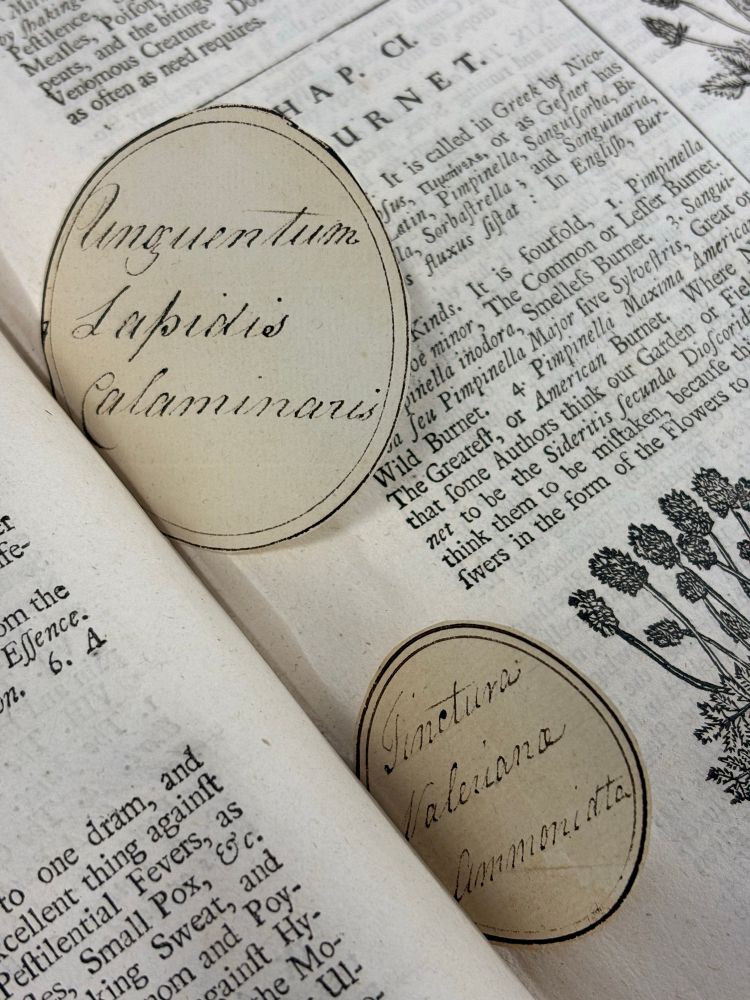 by shaking
Pestilence
Measles, Poison,
pents, and the bitings
Venomous Creature. Do
as often as need requires.
HAP. CI.
URNET.
It is called in Greek by Nica-
or as Gesner has
Pimpinella, Sanguisorba, Bi
Sorbastrella; and Sanguinaria,
fluxus sistat: In English, Bur-
Kinds. It is fourfold, 1. Pimpinella
minor, The Common or Lesser Burnet.
inodora, Smelless Burnet. 3. Sangui
seu Pimpinella Major sive Sylvestris, Great or
Wild Burnet. 4. Pimpinella Maxima American
The Greatest, or American Burnet. Where N
that some Authors think our Garden or Fiel
net to be the Sideritis secunda Dioscorid
think them to be mistaken, because the
swers in the form of the Flowers to
Unguentum
Lapidis
Calaminaris
Tinctura
Valeriana
Ammoniata
om the
Essence.
6. A
to one dram, and
xcellent thing against
Pestilential Fevers, as
Small Pox, &c.
king Sweat, and
nom and Poy-
against Hy-
the Mo-
Ul-